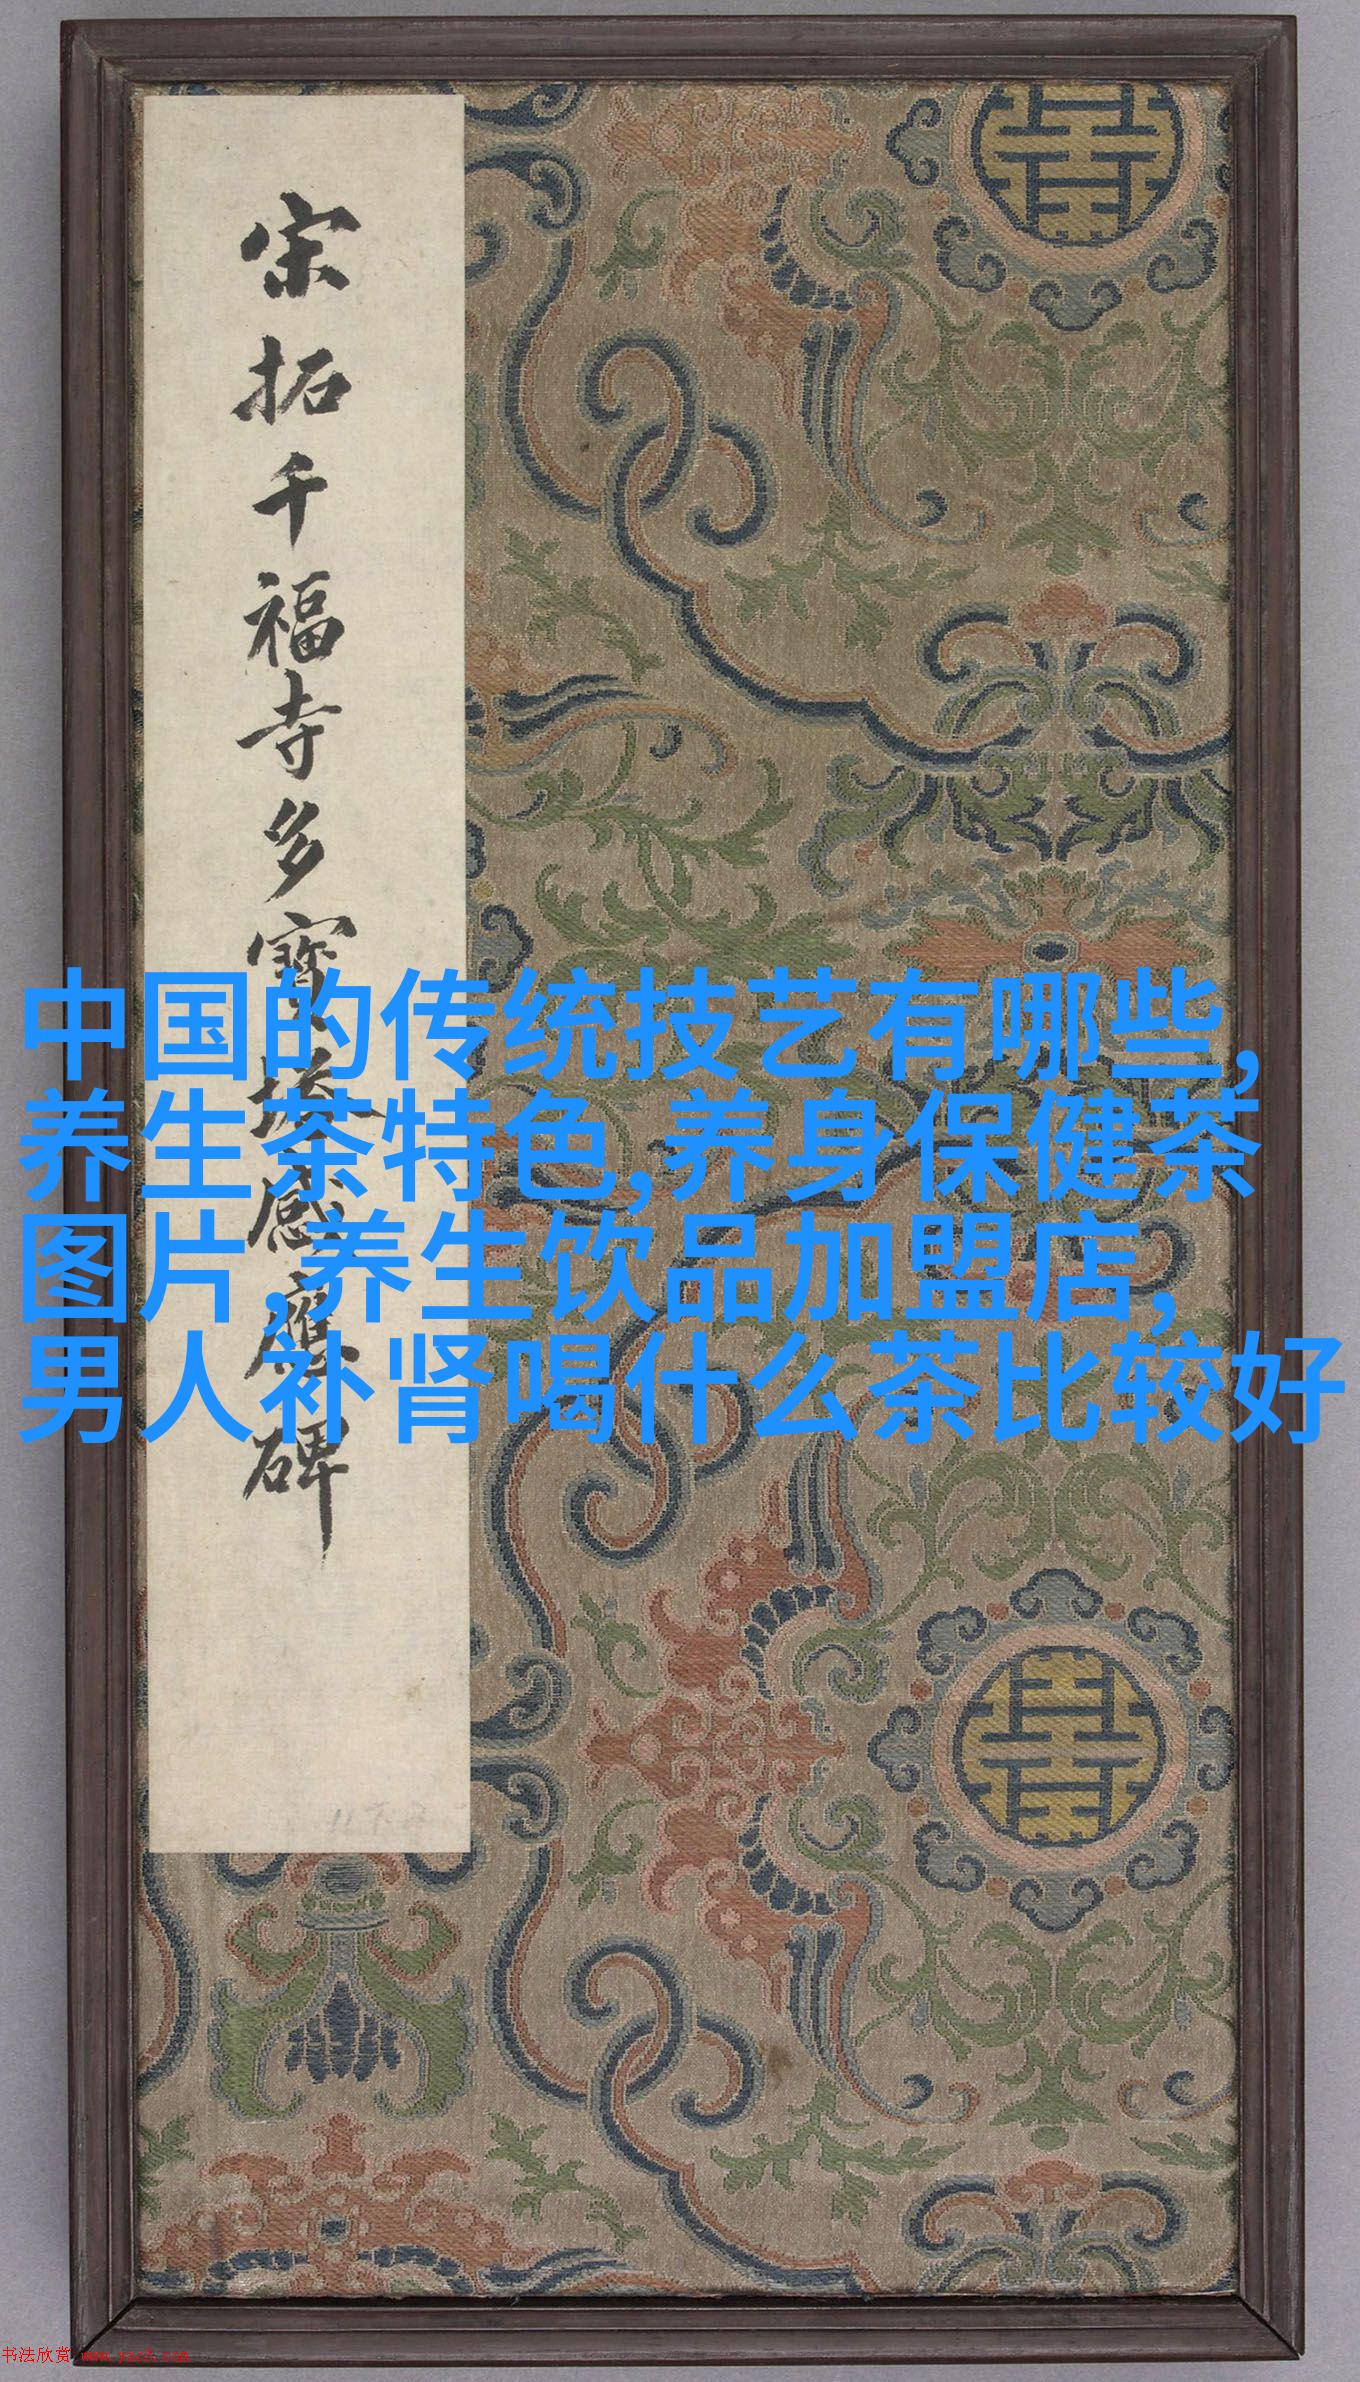 宋拓千福寺多寶塔感應碑
中国的传统技艺有哪些,
养生茶特色,养身保健茶
图片,养生饮品加盟店,
男人补肾喝什么茶比较好
书法欣赏